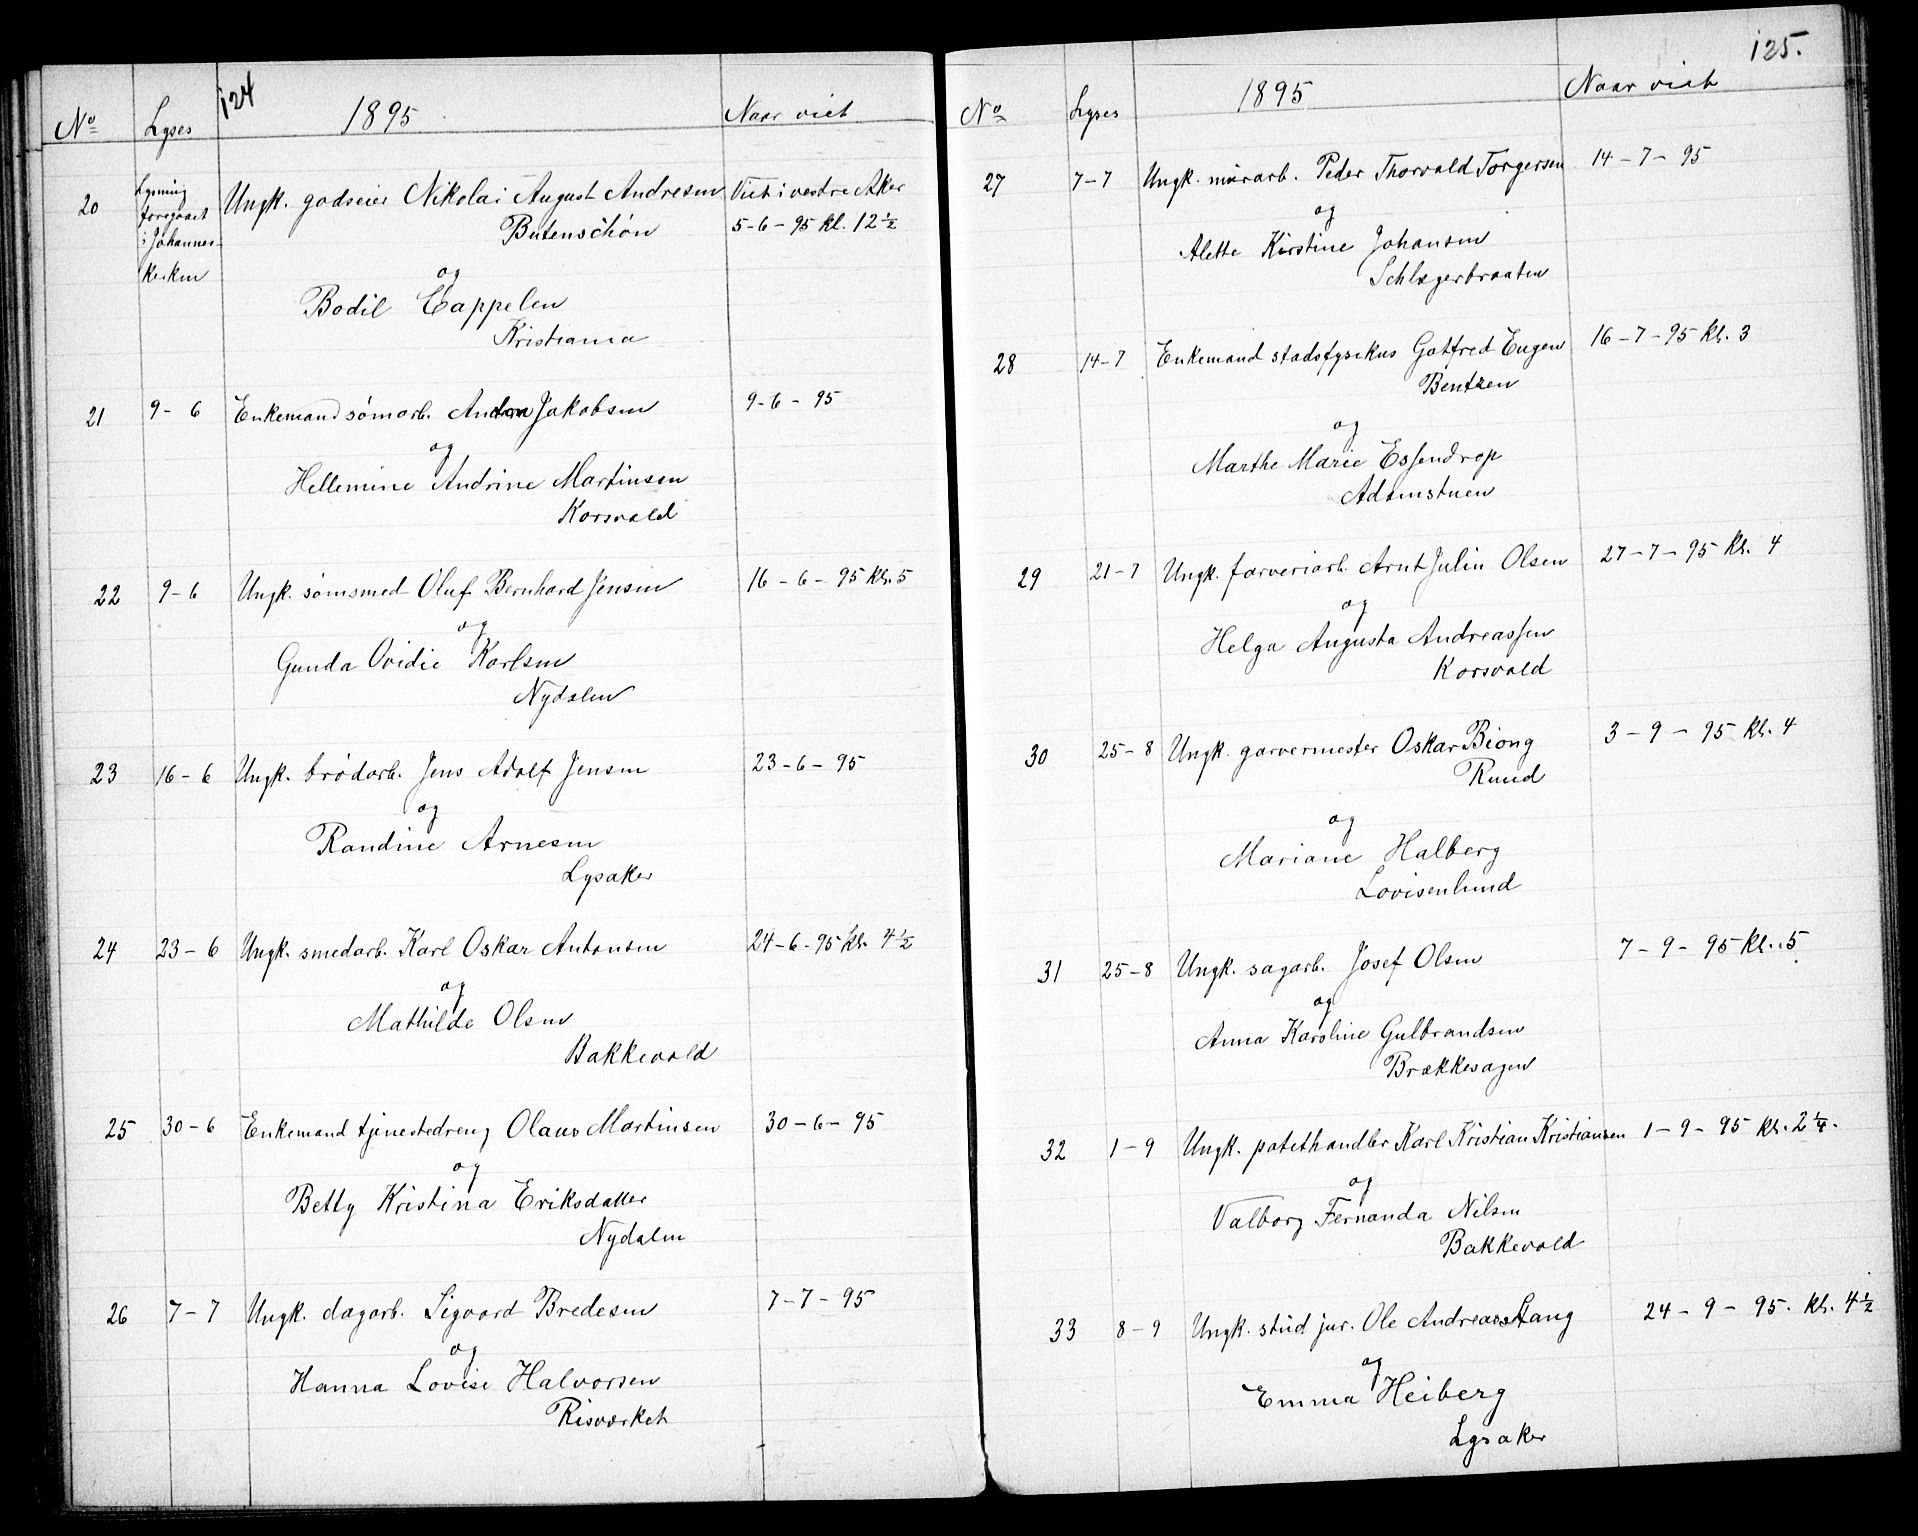 124
No Lyses 1895 Naar viet
20 Lysning foregaaet i Johannes-kirken Ungk. godseier Nikolai August Andresen Viet i vestre Aker
Butenschön 5-6-95 kl. 12½
og
Bodil Cappelen
Kristiania
21 9-6 Enkemand sömarb. Anton Jakobsen 9-6-95
og
Hellemine Andrine Martinsen
Korsvald
22 9-6 Ungk. sömsmed Oluf Bernhard Jensen 16-6-95 kl. 5
og
Gunda Ovidie Karlsen
Nydalen
23 16-6 Ungk. brödarb. Jens Adolf Jensen 23-6-95
og
Randine Arnesen
Lysaker
24 23-6 Ungk. smedarb. Karl Oskar Antonsen 24-6-95 kl. 4½
og
Mathilde Olsen
Bakkevold
25 30-6 Enkemand tjenestedreng Olaus Martinsen 30-6-95
og
Betty Kristina Eriksdatter
Nydalen
26 7-7 Ungk. dagarb. Sigvard Bredesen 7-7-95
og
Hanna Lovise Halvorsen
Risværket
125.
No Lyses 1895 Naar viet
27 7-7 Ungk. murarb. Peder Thorvald Torgersen 14-7-95
og
Alette Kirstine Johansen
Schlægerbraaten
28 14-7 Enkemand stadsfysikus Gotfred Eugen 16-7-95 kl. 3
Bentzen
og
Marthe Marie Essendrop
Adamstuen
29 21-7 Ungk. farveriarb. Arnt Julin Olsen 27-7-95 kl. 4
og
Helga Augusta Andreassen
Korsvold
30 25-8 Ungk. garvermester Oskar Biong 3-9-95 kl. 4
Ruud
og
Mariane Halberg
Lovisenlund
31 25-8 Ungk. sagarb. Josef Olsen 7-9-95 kl. 5
og
Anna Karoline Gulbrandsen
Brækkesagen
32 1-9 Ungk. potethandler Karl Kristian Kristiansen 1-9-95 kl. 2¼.
og
Valborg Fernanda Nilsen
Bakkevold
33 8-9 Ungk. stud jur. Ole Andreas Stang 24-9-95. kl. 4½
og
Emma Heiberg
Lysaker